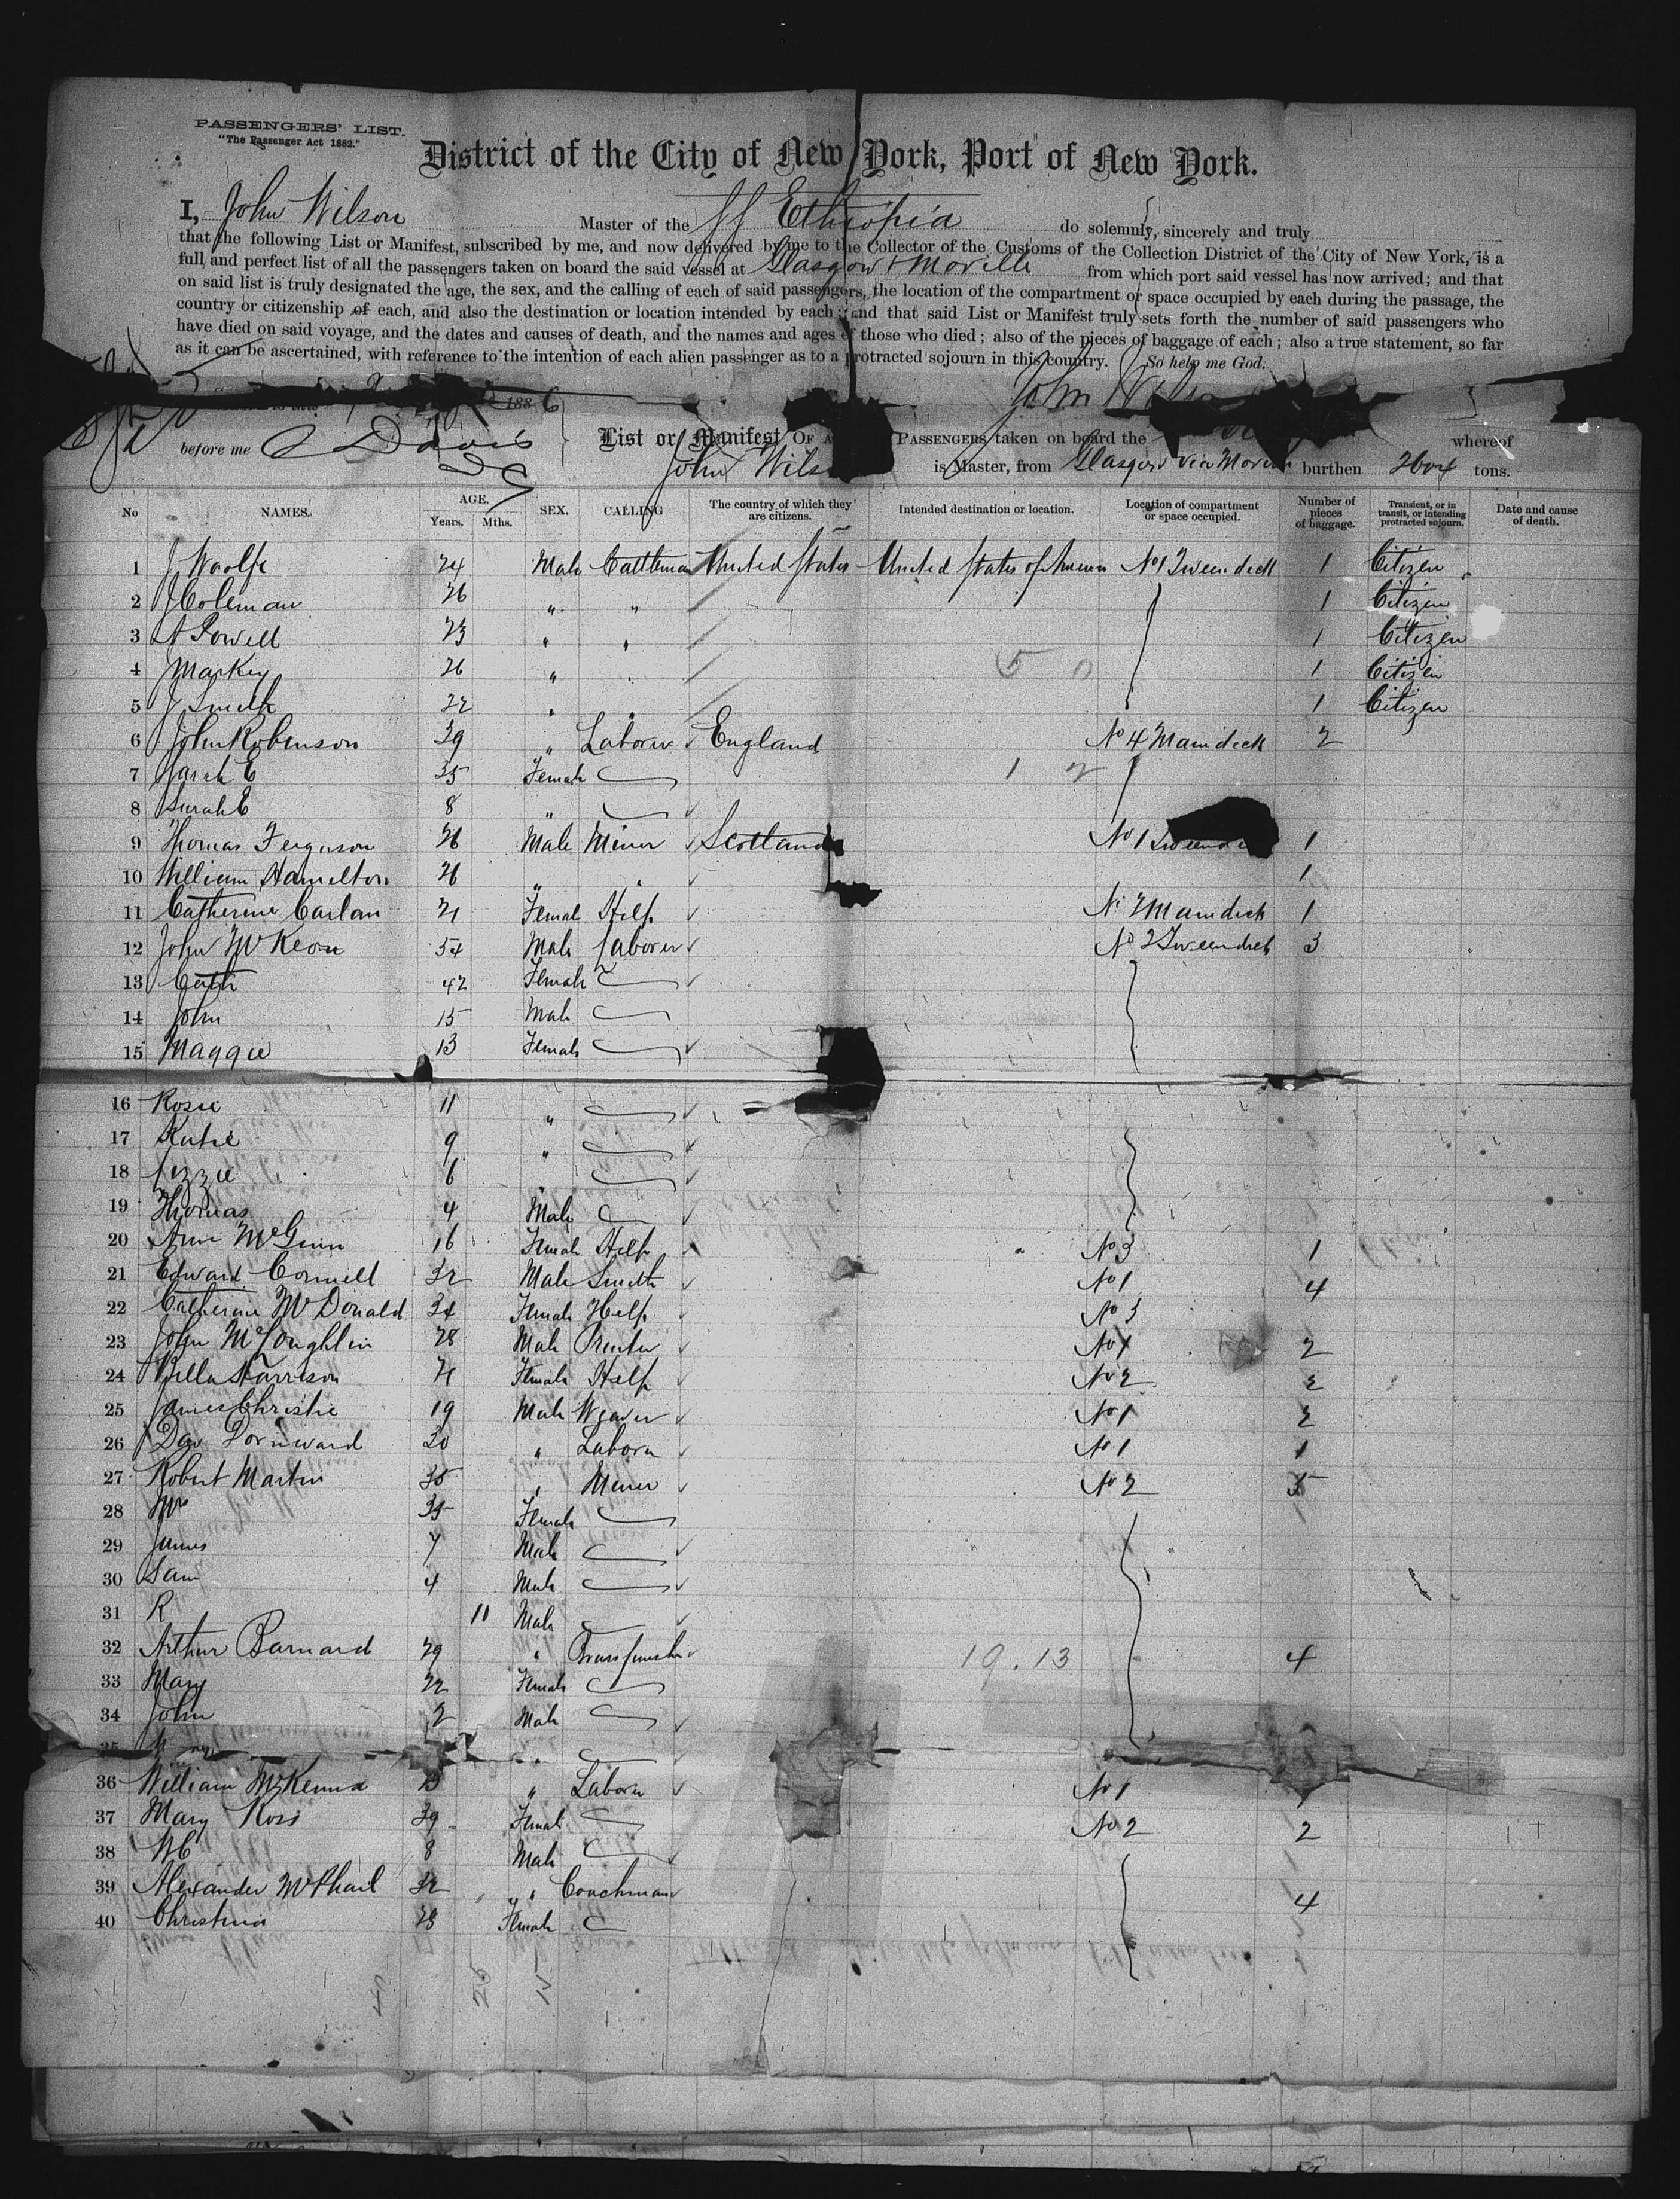 PASSENGERS' LIST.
"The Passenger Act 1882."
District of the City of New York, Port of New York.
I, John Wilson Master of the SS Ethiopia do solemnly, sincerely and truly
that the following List or Manifest, subscribed by me, and now delivered by me to the Collector of the Customs of the Collection District of the City of New York, is a
full and perfect list of all the passengers taken on board the said vessel at Glasgow & Moville from which port said vessel has now arrived; and that
on said list is truly designated the age, the sex, and the calling of each of said passengers, the location of the compartment or space occupied by each during the passage, the
country or citizenship of each, and also the destination or location intended by each; and that said List or Manifest truly sets forth the number of said passengers who
have died on said voyage, and the dates and causes of death, and the names and ages of those who died; also of the pieces of baggage of each; also a true statement, so far
as it can be ascertained, with reference to the intention of each alien passenger as to a protracted sojourn in this country. So help me God.
1886 John Wilson
before me Davis List or Manifest OF A PASSENGERS taken on board the whereof
John Wilson is Master, from Glasgow via Moville burthen 2604 tons.
No NAMES. AGE. Years. Mths. SEX. CALLING The country of which they are citizens. Intended destination or location. Location of compartment or space occupied. Number of pieces of baggage. Transient, or in transit, or intending protracted sojourn. Date and cause of death.
1 J Woolfe 24 Male Cattleman United States United States of America No 1 Tweendeck 1 Citizen
2 J Coleman 26 " " 1 Citizen
3 A Powell 23 " " 1 Citizen
4 Markey 26 " 1 Citizen
5 J Smith 22 " " 1 Citizen
6 John Robinson 39 " Laborer England No 4 Maindeck 2
7 Sarah E 35 Female
8 Sarah E 8 "
9 Thomas Ferguson 26 Male Miner Scotland No 1 Tweende 1
10 William Hamilton 26 " " 1
11 Catherine Carlan 21 Female Help No 2 Maindeck 1
12 John McKeon 54 Male Laborer No 2 Tweendeck 3
13 Cath 42 Female
14 John 15 Male
15 Maggie 13 Female
16 Rosie 11 "
17 Katie 9 "
18 Lizzie 6
19 Thomas 4 Male
20 Ann McGinn 16 Female Help No 3 1
21 Edward Connell 32 Male Smith No 1 4
22 Catherine McDonald 34 Female Help No 3
23 John McLoughlin 28 Male Printer No 1 2
24 Bella Harrison 21 Female Help No 2 2
25 James Christie 19 Male Weaver No 1 2
26 Dav Dornward 30 " Laborer No 1 1
27 Robert Martin 35 " Miner No 2 5
28 Mrs 35 Female
29 James 7 Male
30 Sam 4 Male
31 R 11 Male
32 Arthur Barnard 29 " Brassfinisher 19.13 4
33 Mary 22 Female
34 John 2 Male
35
36 William McKenna " Laborer No 1
37 Mary Ross 39 Female No 2 2
38 Wm 8 Male
39 Alexander McPhail 32 " Coachman 4
40 Christina 28 Female